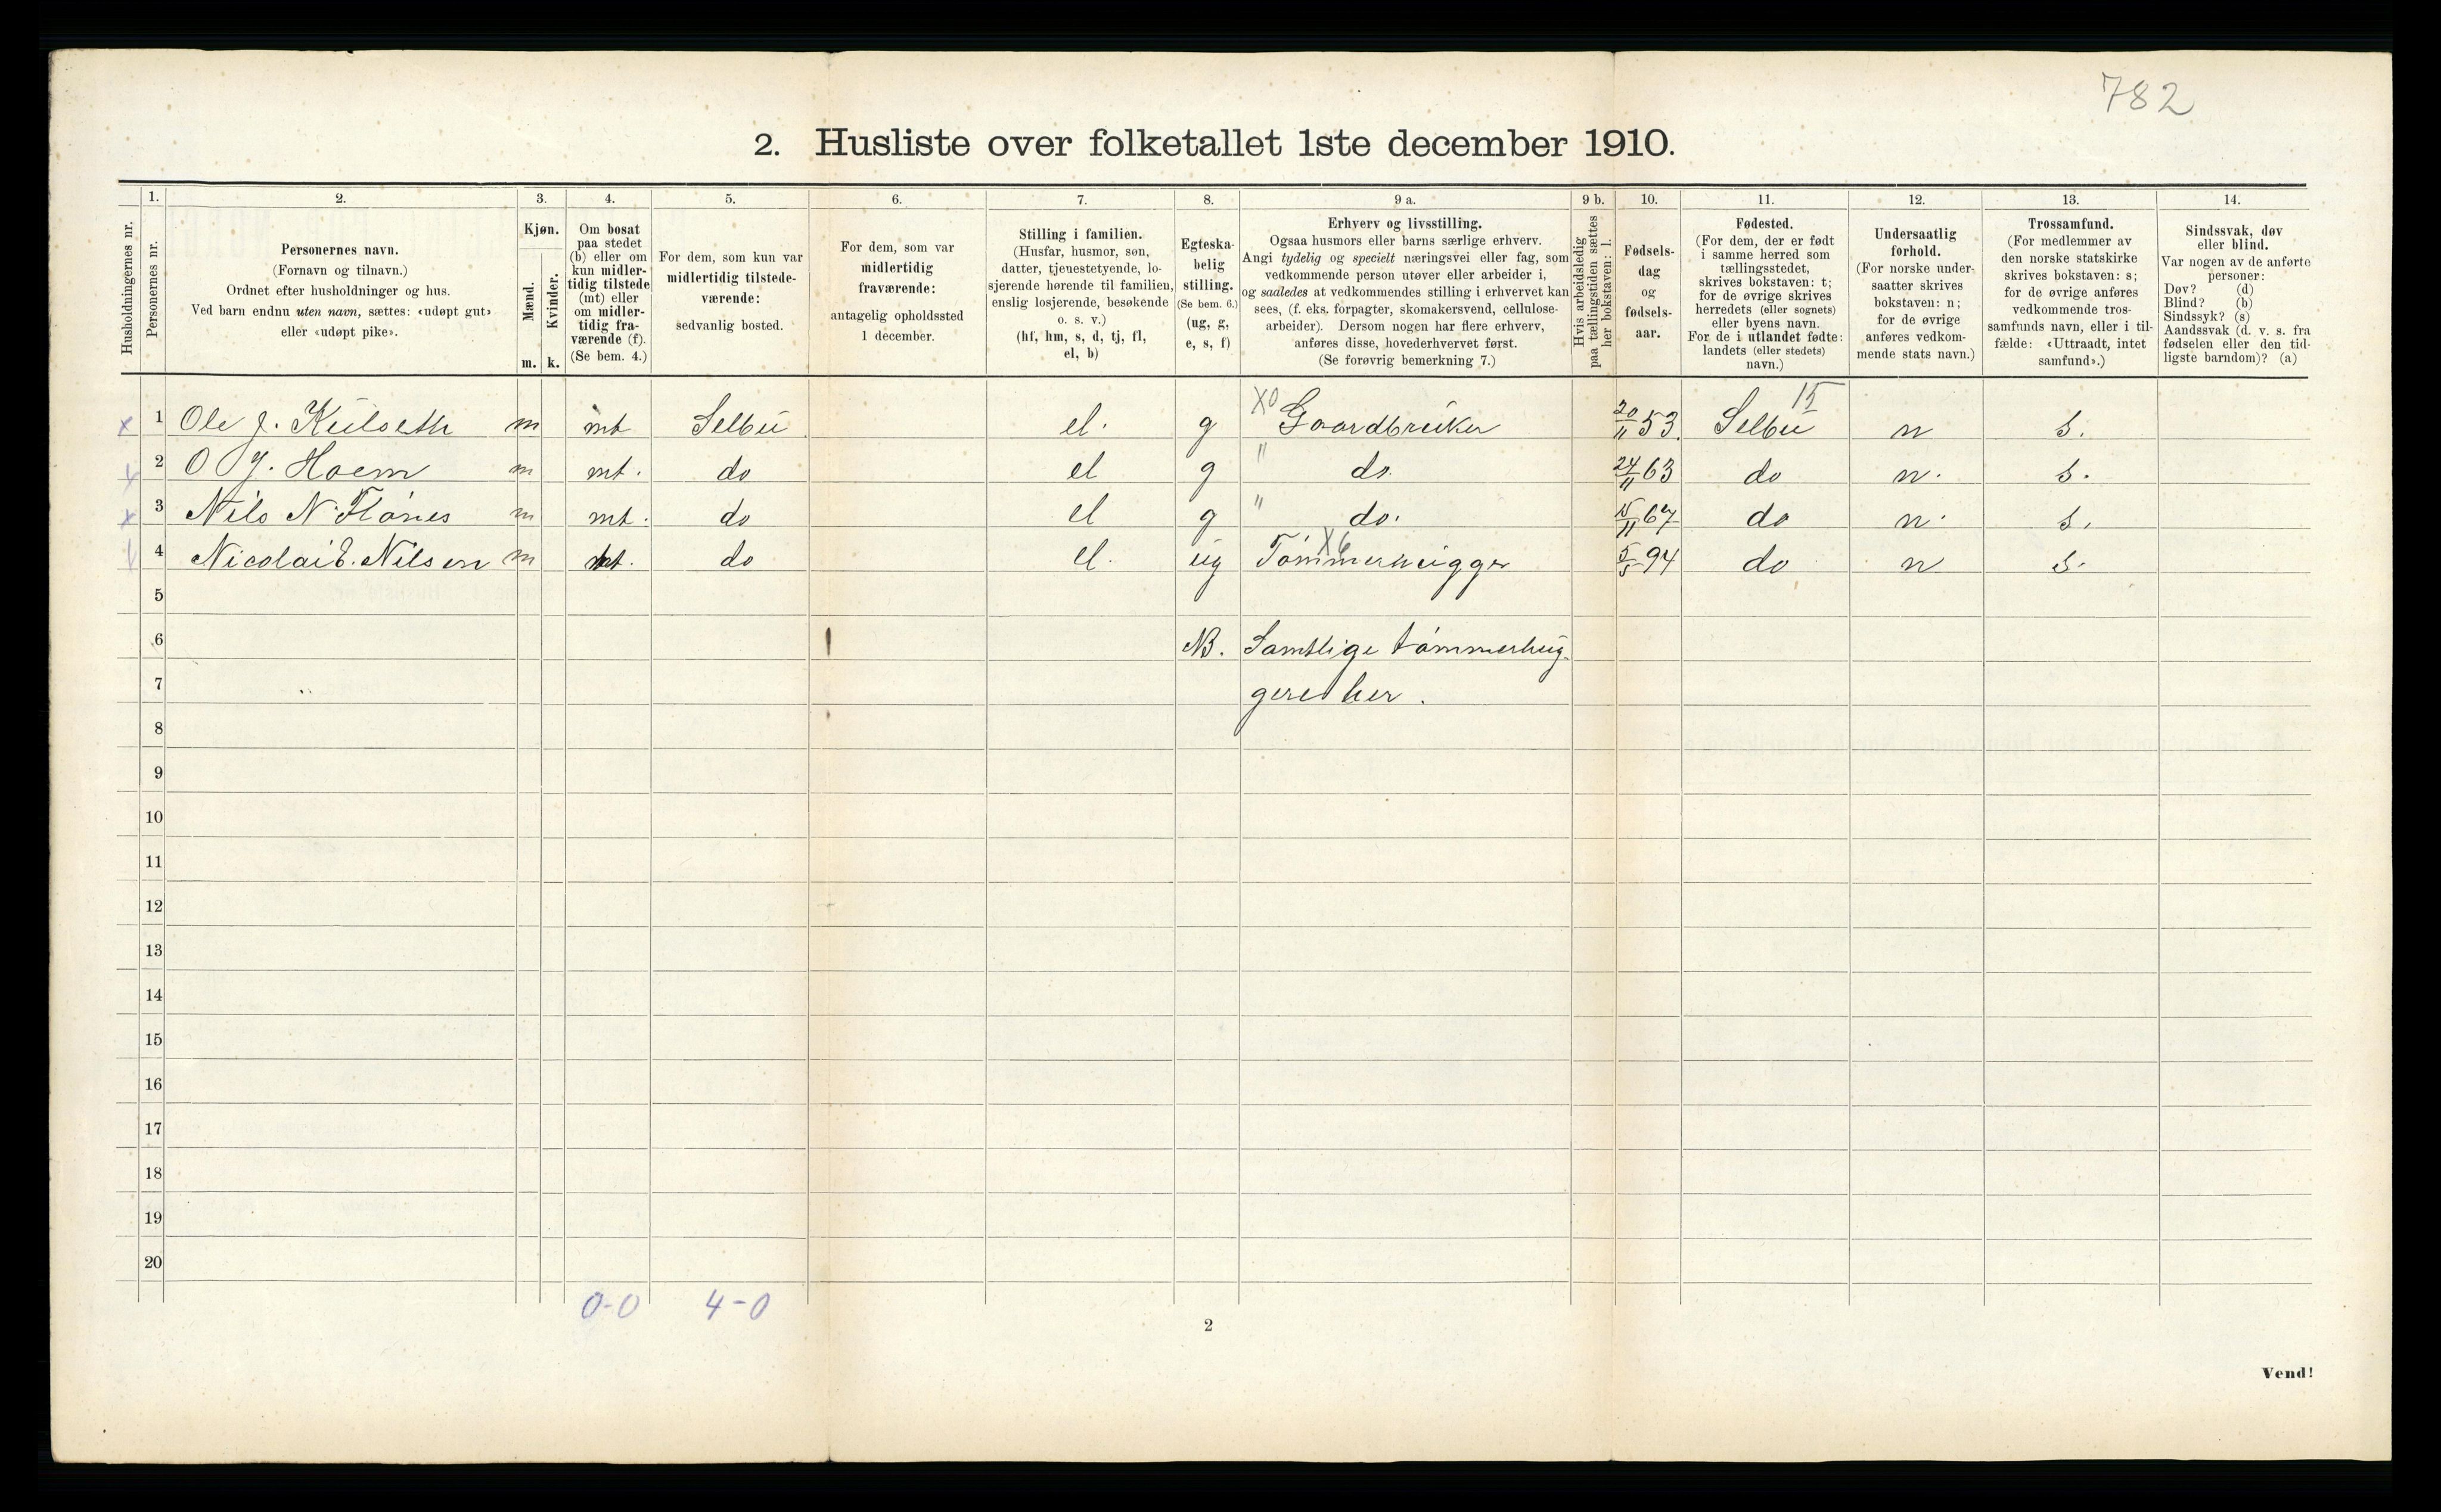 782
2. Husliste over folketallet 1ste december 1910.
Husholdningernes nr.
1.
Personernes nr.
2.
Personernes navn.
(Fornavn og tilnavn.)
Ordnet efter husholdninger og hus.
Ved barn endnu uten navn, sættes: «udøpt gut»
eller «udøpt pike».
3.
Kjøn.
Mænd.
Kvinder.
m. k.
4.
Om bosat
paa stedet
(b) eller om
kun midler-
tidig tilstede
(mt) eller
om midler-
tidig fra-
værende (f).
(Se bem. 4.)
5.
For dem, som kun var
midlertidig tilstede-
værende:
sedvanlig bosted.
6.
For dem, som var
midlertidig
fraværende:
antagelig opholdssted
1 december.
7.
Stilling i familien.
(Husfar, husmor, søn,
datter, tjenestetyende, lo-
sjerende hørende til familien,
enslig losjerende, besøkende
o. s. v.)
(hf, hm, s, d, tj, fl,
el, b)
8.
Egteska-
belig
stilling.
(Se bem. 6.)
(ug, g,
e, s, f)
9 a.
Erhverv og livsstilling.
Ogsaa husmors eller barns særlige erhverv.
Angi tydelig og specielt næringsvei eller fag, som
vedkommende person utøver eller arbeider i,
og saaledes at vedkommendes stilling i erhvervet kan
sees, (f. eks. forpagter, skomakersvend, cellulose-
arbeider). Dersom nogen har flere erhverv,
anføres disse, hovederhvervet først.
(Se forøvrig bemerkning 7.)
9 b.
Hvis arbeidsledig
paa tællingstiden sættes
her bokstaven: l.
10.
Fødsels-
dag
og
fødsels-
aar.
11.
Fødested.
(For dem, der er født
i samme herred som
tællingsstedet,
skrives bokstaven: t;
for de øvrige skrives
herredets (eller sognets)
eller byens navn.
For de i utlandet fødte:
landets (eller stedets)
navn.)
12.
Undersaatlig
forhold.
(For norske under-
saatter skrives
bokstaven: n;
for de øvrige
anføres vedkom-
mende stats navn.)
13.
Trossamfund.
(For medlemmer av
den norske statskirke
skrives bokstaven: s;
for de øvrige anføres
vedkommende tros-
samfunds navn, eller i til-
fælde: «Uttraadt, intet
samfund».)
14.
Sindssvak, døv
eller blind.
Var nogen av de anførte
personer:
Døv? (d)
Blind? (b)
Sindssyk? (s)
Aandssvak (d. v. s. fra
fødselen eller den tid-
ligste barndom)? (a)
x 1 Ole J. Kulseth m mt Selbu el. g X0 Gaardbruker 20/11 53. Selbu 15 n s.
x 2 O J. Hoem m mt. do el g " do. 24/11 63 do n. s.
x 3 Nils N. Flønes m mt. do el g " do. 15/11 67 do n. s.
4 Nicolai E. Nilsen m mt. do el. ug X6 Tømmerhugger 5/5 94 do n s.
5
6 NB. Samtlige tømmerhug-
7 gere her.
8
9
10
11
12
13
14
15
16
17
18
19
20
0-0 4-0
2
Vend!